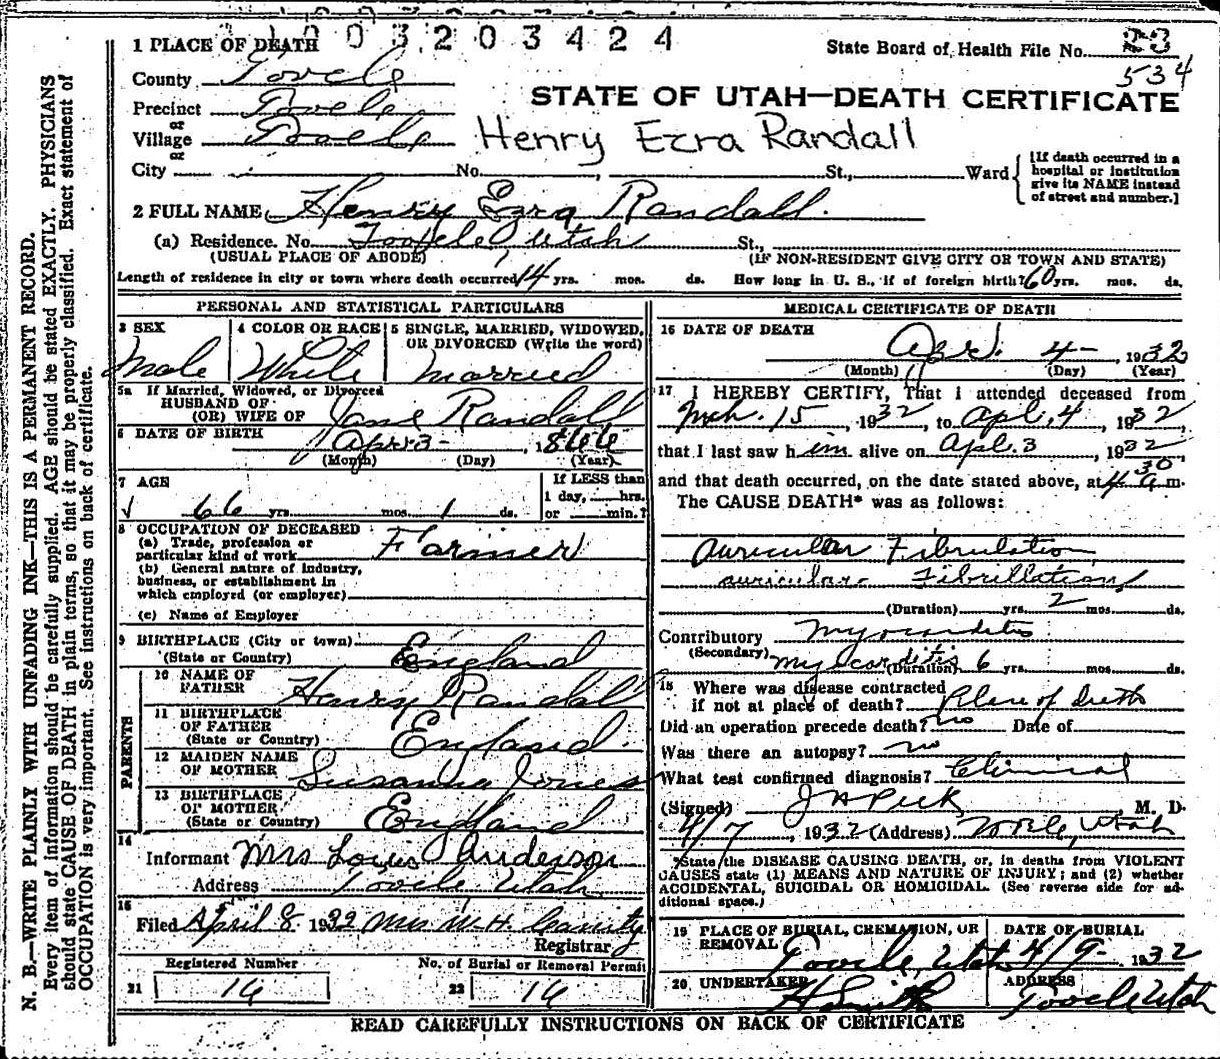 1003203424
1 PLACE OF DEATH
State Board of Health File No. 23
534
County Tooele
STATE OF UTAH—DEATH CERTIFICATE
Precinct Tooele
or
Village Tooele
Henry Ezra Randall
or
City No. St., Ward
[If death occurred in a hospital or institution give its NAME instead of street and number.]
2 FULL NAME Henry Ezra Randall.
(a) Residence. No. Tooele, Utah St.,
(USUAL PLACE OF ABODE) (IF NON-RESIDENT GIVE CITY OR TOWN AND STATE)
Length of residence in city or town where death occurred 14 yrs. mos. ds. How long in U. S., if of foreign birth? 60 yrs. mos. ds.
PERSONAL AND STATISTICAL PARTICULARS
3 SEX 4 COLOR OR RACE 5 SINGLE, MARRIED, WIDOWED, OR DIVORCED (Write the word)
Male White Married
5a If Married, Widowed, or Divorced
HUSBAND OF
(OR) WIFE OF Jane Randall
6 DATE OF BIRTH Apr 3 - , 1866
(Month) (Day) (Year)
7 AGE If LESS than
1 day, hrs.
66 yrs. mos. 1 ds. or min.?
8 OCCUPATION OF DECEASED
(a) Trade, profession or
particular kind of work Farmer
(b) General nature of industry,
business, or establishment in
which employed (or employer)
(c) Name of Employer
9 BIRTHPLACE (City or town)
(State or Country) England
PARENTS
10 NAME OF
FATHER Henry Randall
11 BIRTHPLACE
OF FATHER
(State or Country) England.
12 MAIDEN NAME
OF MOTHER Susanna Jones
13 BIRTHPLACE
OF MOTHER
(State or Country) England
14
Informant Mrs Louis Anderson
Address Tooele Utah
15
Filed April 8 1932 Mrs M.H.
Registrar
Registered Number No. of Burial or Removal Permit
21 14 22 14
MEDICAL CERTIFICATE OF DEATH
16 DATE OF DEATH
Apr. 4 - , 1932
(Month) (Day) (Year)
17 I HEREBY CERTIFY, That I attended deceased from
Mch. 15, 1932, to Apl. 4, 1932,
that I last saw him alive on Apl. 3, 1932
and that death occurred, on the date stated above, at 4 30 a m.
The CAUSE DEATH* was as follows:
Auricular Fibrulation
auricular Fibrillation
(Duration) yrs. 2 mos. ds.
Contributory Myocarditis
(Secondary)
myocarditis (Duration) 6 yrs. mos. ds.
18 Where was disease contracted
if not at place of death? Place of death
Did an operation precede death? no Date of
Was there an autopsy? no
What test confirmed diagnosis? Clinical
(Signed) J A Peck, M. D.
4/7, 1932 (Address) Tooele, Utah
*State the DISEASE CAUSING DEATH, or, in deaths from VIOLENT
CAUSES state (1) MEANS AND NATURE OF INJURY; and (2) whether
ACCIDENTAL, SUICIDAL OR HOMICIDAL. (See reverse side for ad-
ditional space.)
19 PLACE OF BURIAL, CREMATION, OR REMOVAL DATE OF BURIAL
Tooele, Utah 4/9- 1932
20 UNDERTAKER ADDRESS
H Smith Tooele Utah
READ CAREFULLY INSTRUCTIONS ON BACK OF CERTIFICATE
N. B.—WRITE PLAINLY WITH UNFADING INK—THIS IS A PERMANENT RECORD.
Every item of information should be carefully supplied. AGE should be stated EXACTLY. PHYSICIANS
should state CAUSE OF DEATH in plain terms, so that it may be properly classified. Exact statement of
OCCUPATION is very important. See instructions on back of certificate.